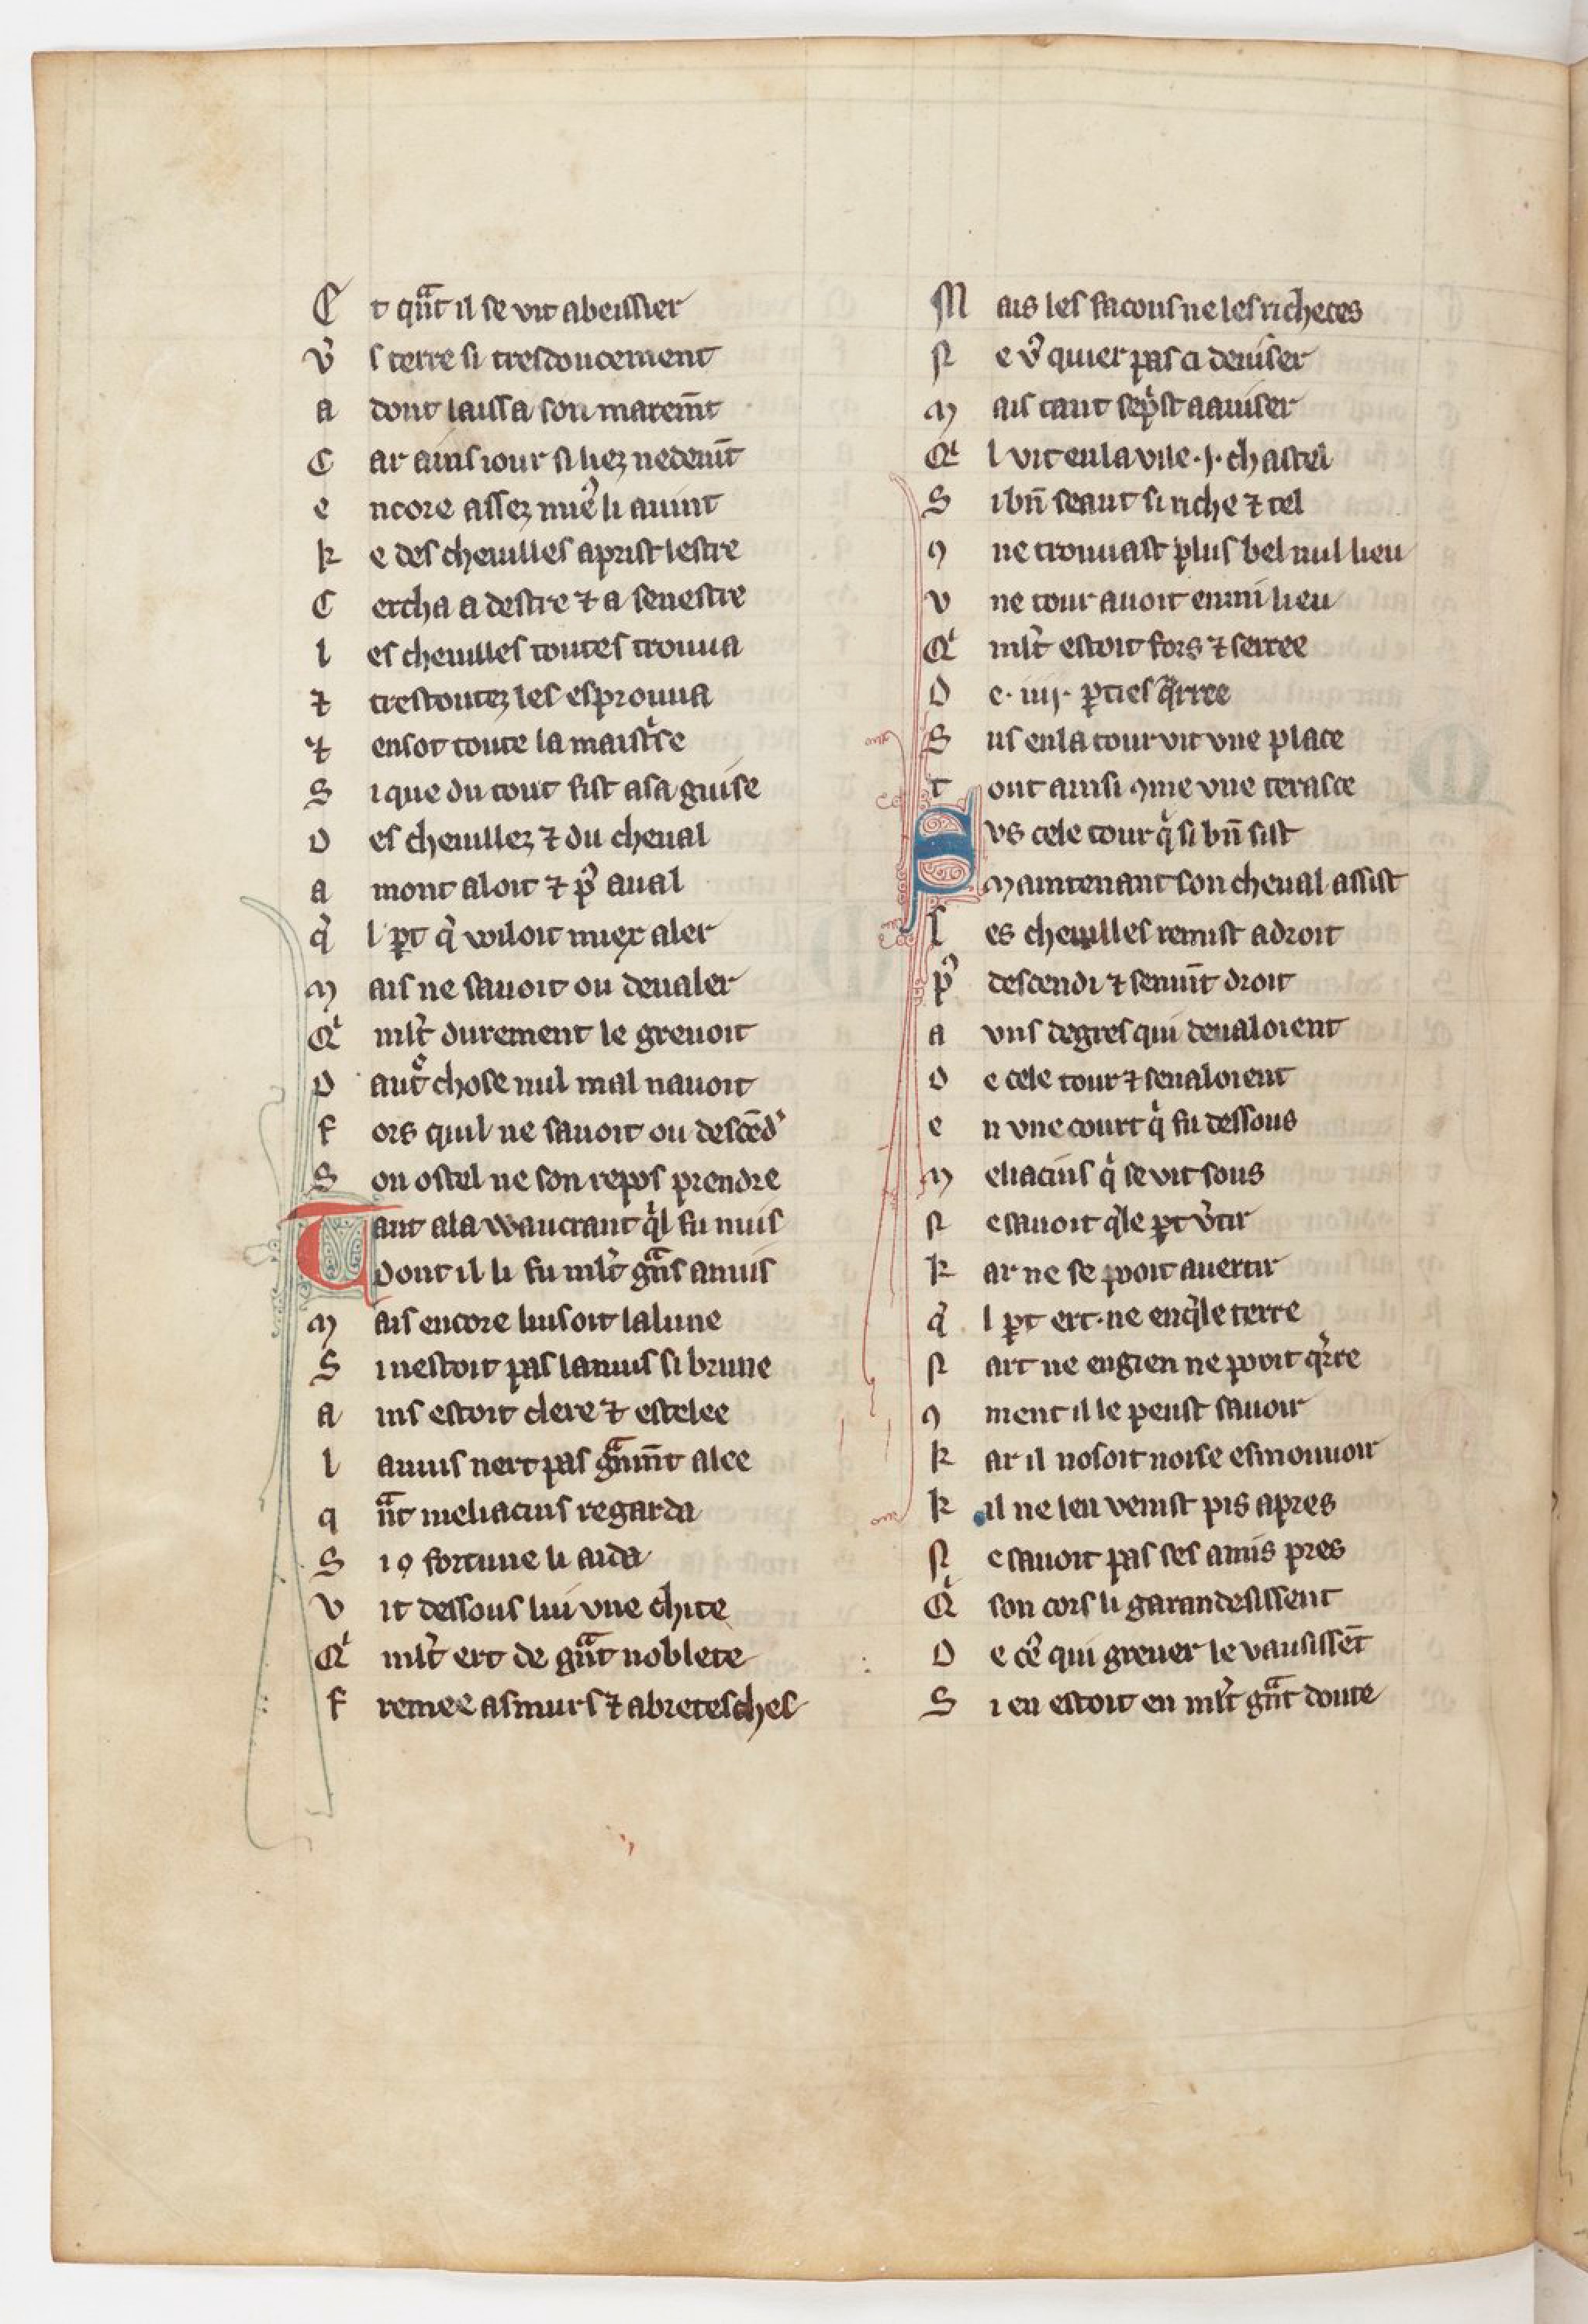 Et qᵃ̄t il se vit abeissier
vˢ terre si tresdoucement
adont laissa son maremēt
Car ains iour si liez ne deuīt
encore assez mieˢ li auint
ke des cheuilles aprist lestre
Cercha a destre ⁊ a senestre
les cheuilles toutes trouua
⁊ trestoutez les esprouua
⁊ ensot toute la maistⁱse
Si que du tout fist asa guise
Des cheuillez ⁊ du cheual
amont aloit ⁊ pˢ aual
qⁱl ꝑt qⁱ voloit miex aler
mais ne sauoit ou deualer
Qⁱ mlt̄ durement le greuoit
Dautᵒ chose nul mal nauoit
fors quil ne sauoit ou descēdˢ
Son ostel ne son repos prendre
Tant ala waucrant qⁱl fu nuis
Dont il li fu mlt̄ gᵃ̄s anuis
mais encore luisoit la lune
Si nestoit pas la nuis si brune
ains estoit clere ⁊ estelee
la nuis nert pas gᵃ̄mēt alee
qᵃ̄t meliacins regarda
Si ꝯ fortune li aida
vit dessous lui vne chite
Qⁱ mlt̄ ert de gᵃ̄t noblete
fremee as murs ⁊ a bretesches
Mais les facons ne les richeces
Ne vˢ quier pas ci deuiser
mais tant sepⁱst a auiser
Qⁱl vit en la vile .j. chastel
Si bn̄ seant si riche ⁊ tel
ꝯ ne trouuast plus bel nul lieu
vne tour auoit enmi lieu
Qⁱ mlt̄ estoit fors ⁊ serree
De .iiij. ꝑties qᵃrree
Sus en la tour vit vne place
tout ainsi ꝯme vne terasce
Sus cele tour qⁱ si bn̄ sist
maintenant son cheual assist
les cheuilles remist a droit
pˢ descendi ⁊ sen uīt droit
a vns degres qui deualoient
de cele tour ⁊ senaloient
en vne court qⁱ fu dessous
meliacins qⁱ se vit sous
Ne sauoit qⁱle ꝑt vˢtir
kar ne se pooit auertir
qⁱl ꝑt ert. ne en qⁱle terre
Nart ne engien ne pooit qⁱrre
ꝯment il le peust sauoir
kar il nosoit noise esmouuoir
kil ne len venist pis apres
Ne sauoit pas ses amis pres
Qⁱ son cors li garandesissent
De ceˢ qui greuer le vausissēt
Si en estoit en mlt̄ gᵃ̄t doute